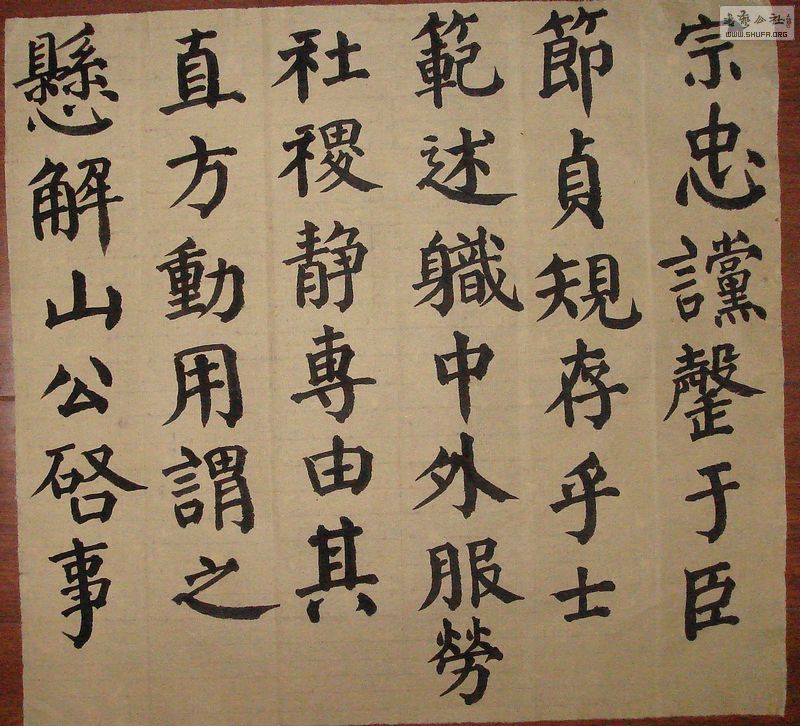 宗忠讜罄于臣
節貞規存乎士
範述軄中外服勞
社稷静専由其
直方動用謂之
懸解山公啓事
WWW.SHUFA.ORG